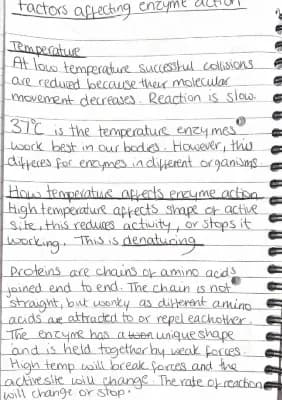 factors affecting enzyme action
Temperature
At low temperature successful collisions
are reduced because their molecular
movement decreases. Reaction is slow.
37°C is the temperature enzymes
work best in our bodies. However, this
differes for enzymes in different organisms
How temperature affects enzyme action
High temperature affects shape of active
site, this reduces activity, or stops it
working. This is denaturing
Proteins are chains of amino acids
joined end to end. The chain is not
straught, but wonky as different amino
acids are attracted to or repel eachother.
The enzyme has a unique shape
and is held together by weak forces.
High temp will break forces and the
active site will change. The rate of reaction
will change or stop.